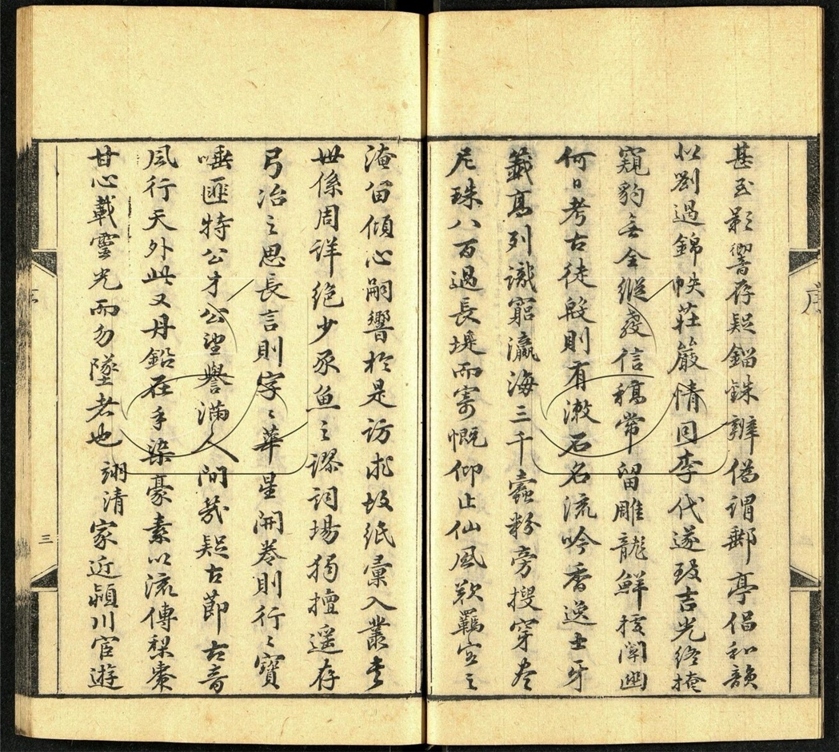 甚至影響存疑錙銖辨偽謂郵亭倡和韻
似劉過錦帙莊嚴情同李代遂致吉光終掩
窺豹無全縱教信稿常留雕龍鮮接闡幽
何日考古徒殷則有漱石名流吟香逸士牙
籤高列識窮瀛海三千蠹粉旁搜穿盡
尼珠八百過長堤而寄慨仰止仙風歎羈宦之
淹留傾心嗣響於是訪求故紙彙入叢書
世係周詳絕少豕魚之謬詞場獨擅遥存
弓冶之思長言則字〻華星開卷則行〻寶
唾匪特公才公望譽滿人間幾疑古節古音
風行天外此又丹鉛在手染豪素以流傳梨棗
甘心載靈光而勿墜者也 翊清家近潁川宦遊
序
三